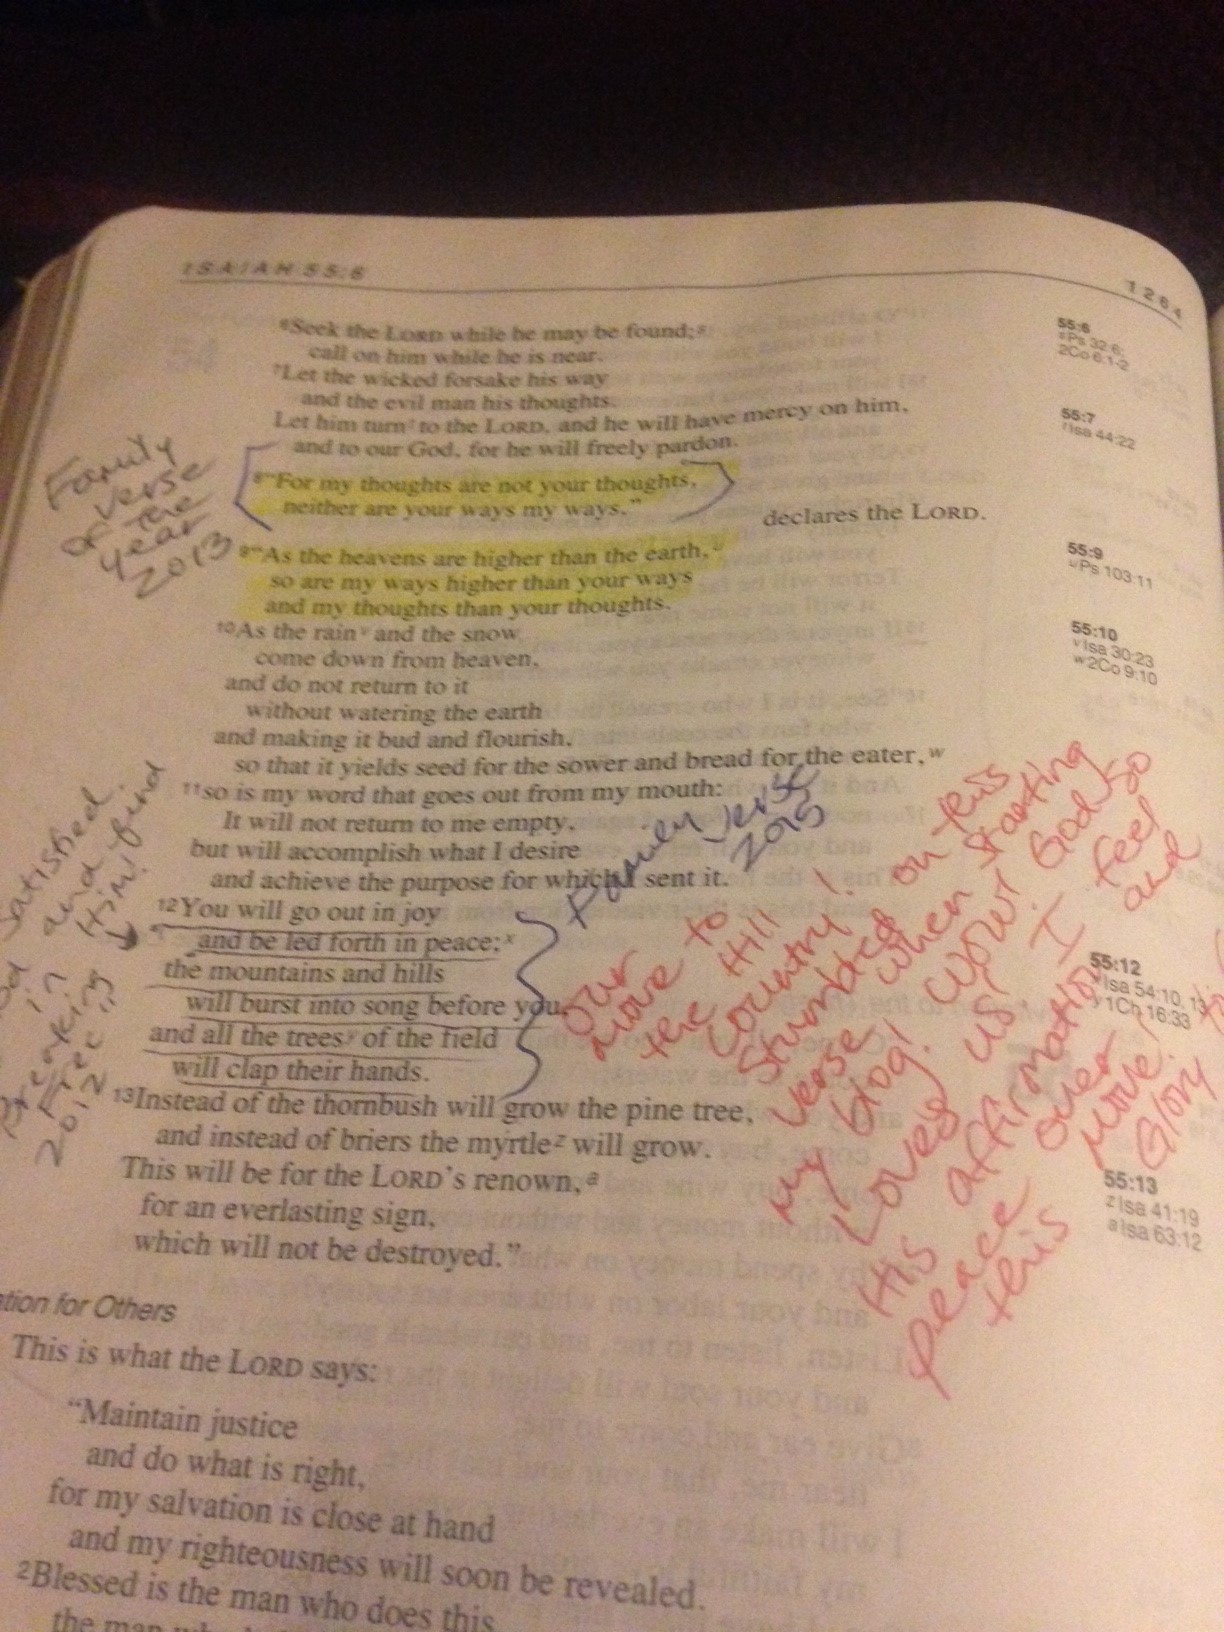 ISAIAH 55:6
1264
⁶Seek the LORD while he may be found;ˢ
call on him while he is near.
⁷Let the wicked forsake his way
and the evil man his thoughts.
Let him turnᵗ to the LORD, and he will have mercy on him,
and to our God, for he will freely pardon.
⁸"For my thoughts are not your thoughts,
neither are your ways my ways,"
declares the LORD.
⁹"As the heavens are higher than the earth,ᵘ
so are my ways higher than your ways
and my thoughts than your thoughts.
¹⁰As the rainᵛ and the snow
come down from heaven,
and do not return to it
without watering the earth
and making it bud and flourish,
so that it yields seed for the sower and bread for the eater,ʷ
¹¹so is my word that goes out from my mouth:
It will not return to me empty,
but will accomplish what I desire
and achieve the purpose for which I sent it.
¹²You will go out in joy
and be led forth in peace;ˣ
the mountains and hills
will burst into song before you,
and all the treesʸ of the field
will clap their hands.
¹³Instead of the thornbush will grow the pine tree,
and instead of briers the myrtleᶻ will grow.
This will be for the LORD's renown,ᵃ
for an everlasting sign,
which will not be destroyed."
ation for Others
This is what the LORD says:
"Maintain justice
and do what is right,
for my salvation is close at hand
and my righteousness will soon be revealed.
²Blessed is the man who does this
the man
55:6
ˢPs 32:6;
2Co 6:1-2
55:7
ᵗIsa 44:22
55:9
ᵘPs 103:11
55:10
ᵛIsa 30:23
ʷ2Co 9:10
55:12
ˣIsa 54:10, 13
ʸ1Ch 16:33
55:13
ᶻIsa 41:19
ᵃIsa 63:12
Family
verse
of the
year
2013
satisfied
in and
Him find
Breaking
Free
2012
Family verse
2015
our
move to
the Hill
Country!
Stumbled on this
verse when starting
my blog! Wow! God so
Loves us! I feel
His affirmation and
peace over
this move!
Glory